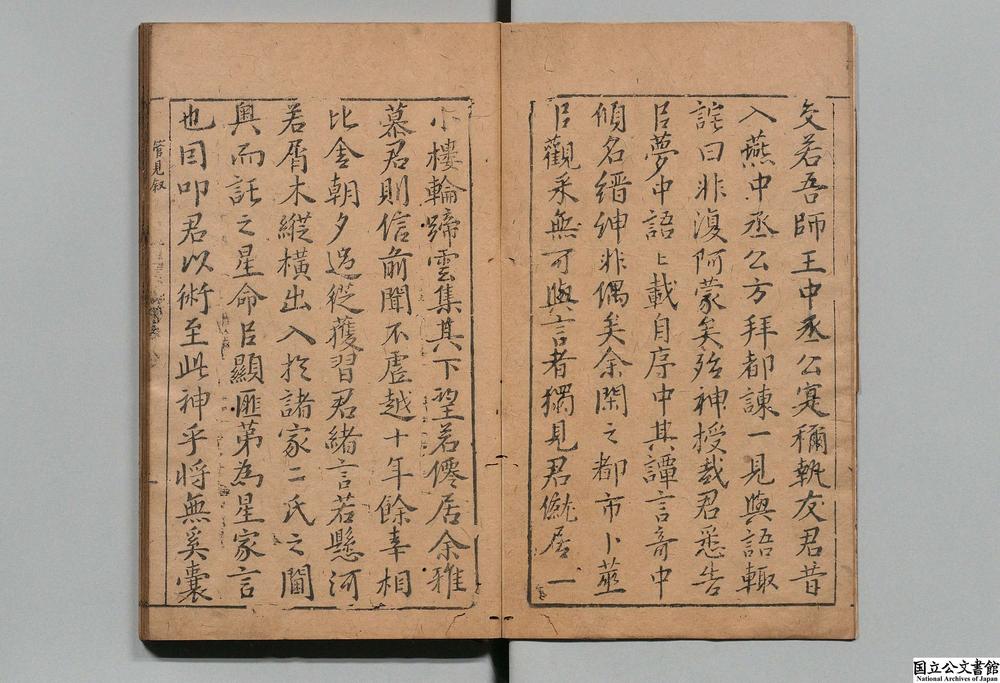 交若吾師王中丞公寔稱執友君昔
入燕中丞公方拜都諫一見與語輙
詫曰非復阿蒙矣殆神授哉君悉告
㠯夢中語〻載自序中其譚言奇中
傾名縉紳非偶矣余閑之都市卜筮
㠯觀采無可與言者獨見君僦居一
小樓輪蹄雲集其下望若僊居余雅
慕君則信前聞不虛越十年餘幸相
比舍朝夕過從獲習君緒言若懸河
若屑木縱橫出入於諸家二氏之閫
奧而託之星命㠯顯匪第為星家言
也因叩君以術至此神乎將無奚囊
管見叙
国立公文書館
National Archives of Japan